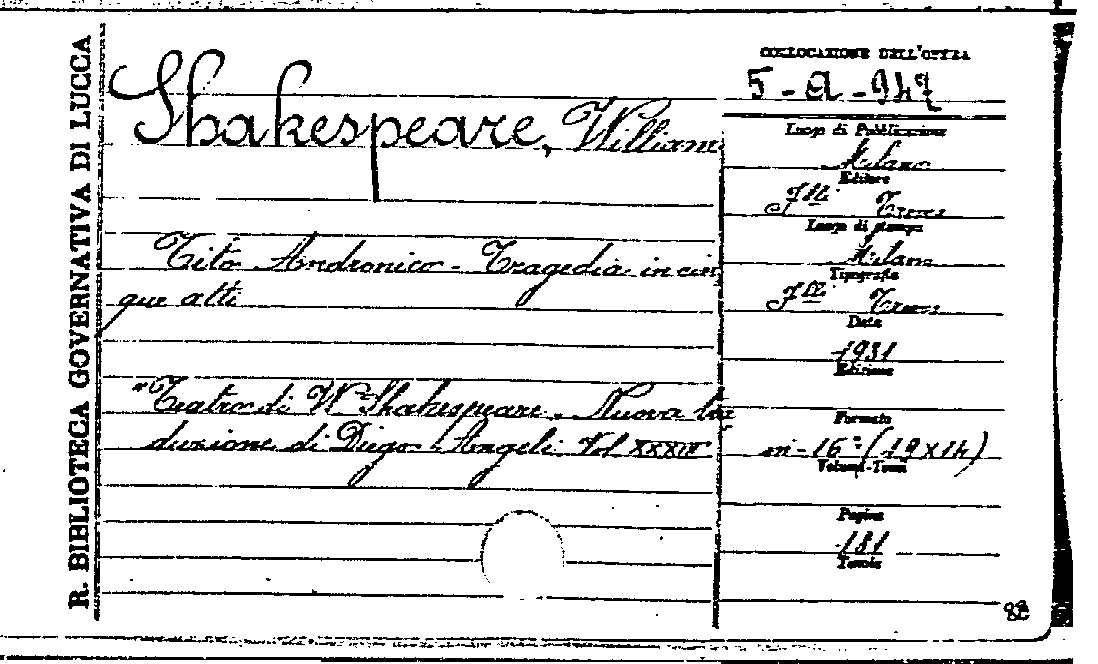 R. BIBLIOTECA GOVERNATIVA DI LUCCA
Shakespeare, William
Tito Andronico - Tragedia in cin
que atti
"Teatro di W. Shakespeare. Nuova tra
duzione di Diego Angeli. Vol XXXIV
COLLOCAZIONE DELL'OPERA
5 - A - 947
Luogo di Pubblicazione
Milano
Editore
F.lli Treves
Luogo di stampa
Milano
Tipografia
F.lli Treves
Data
1931
Edizione
Formato
in-16° (19x14)
Volumi-Tomi
Pagine
181
Tavole